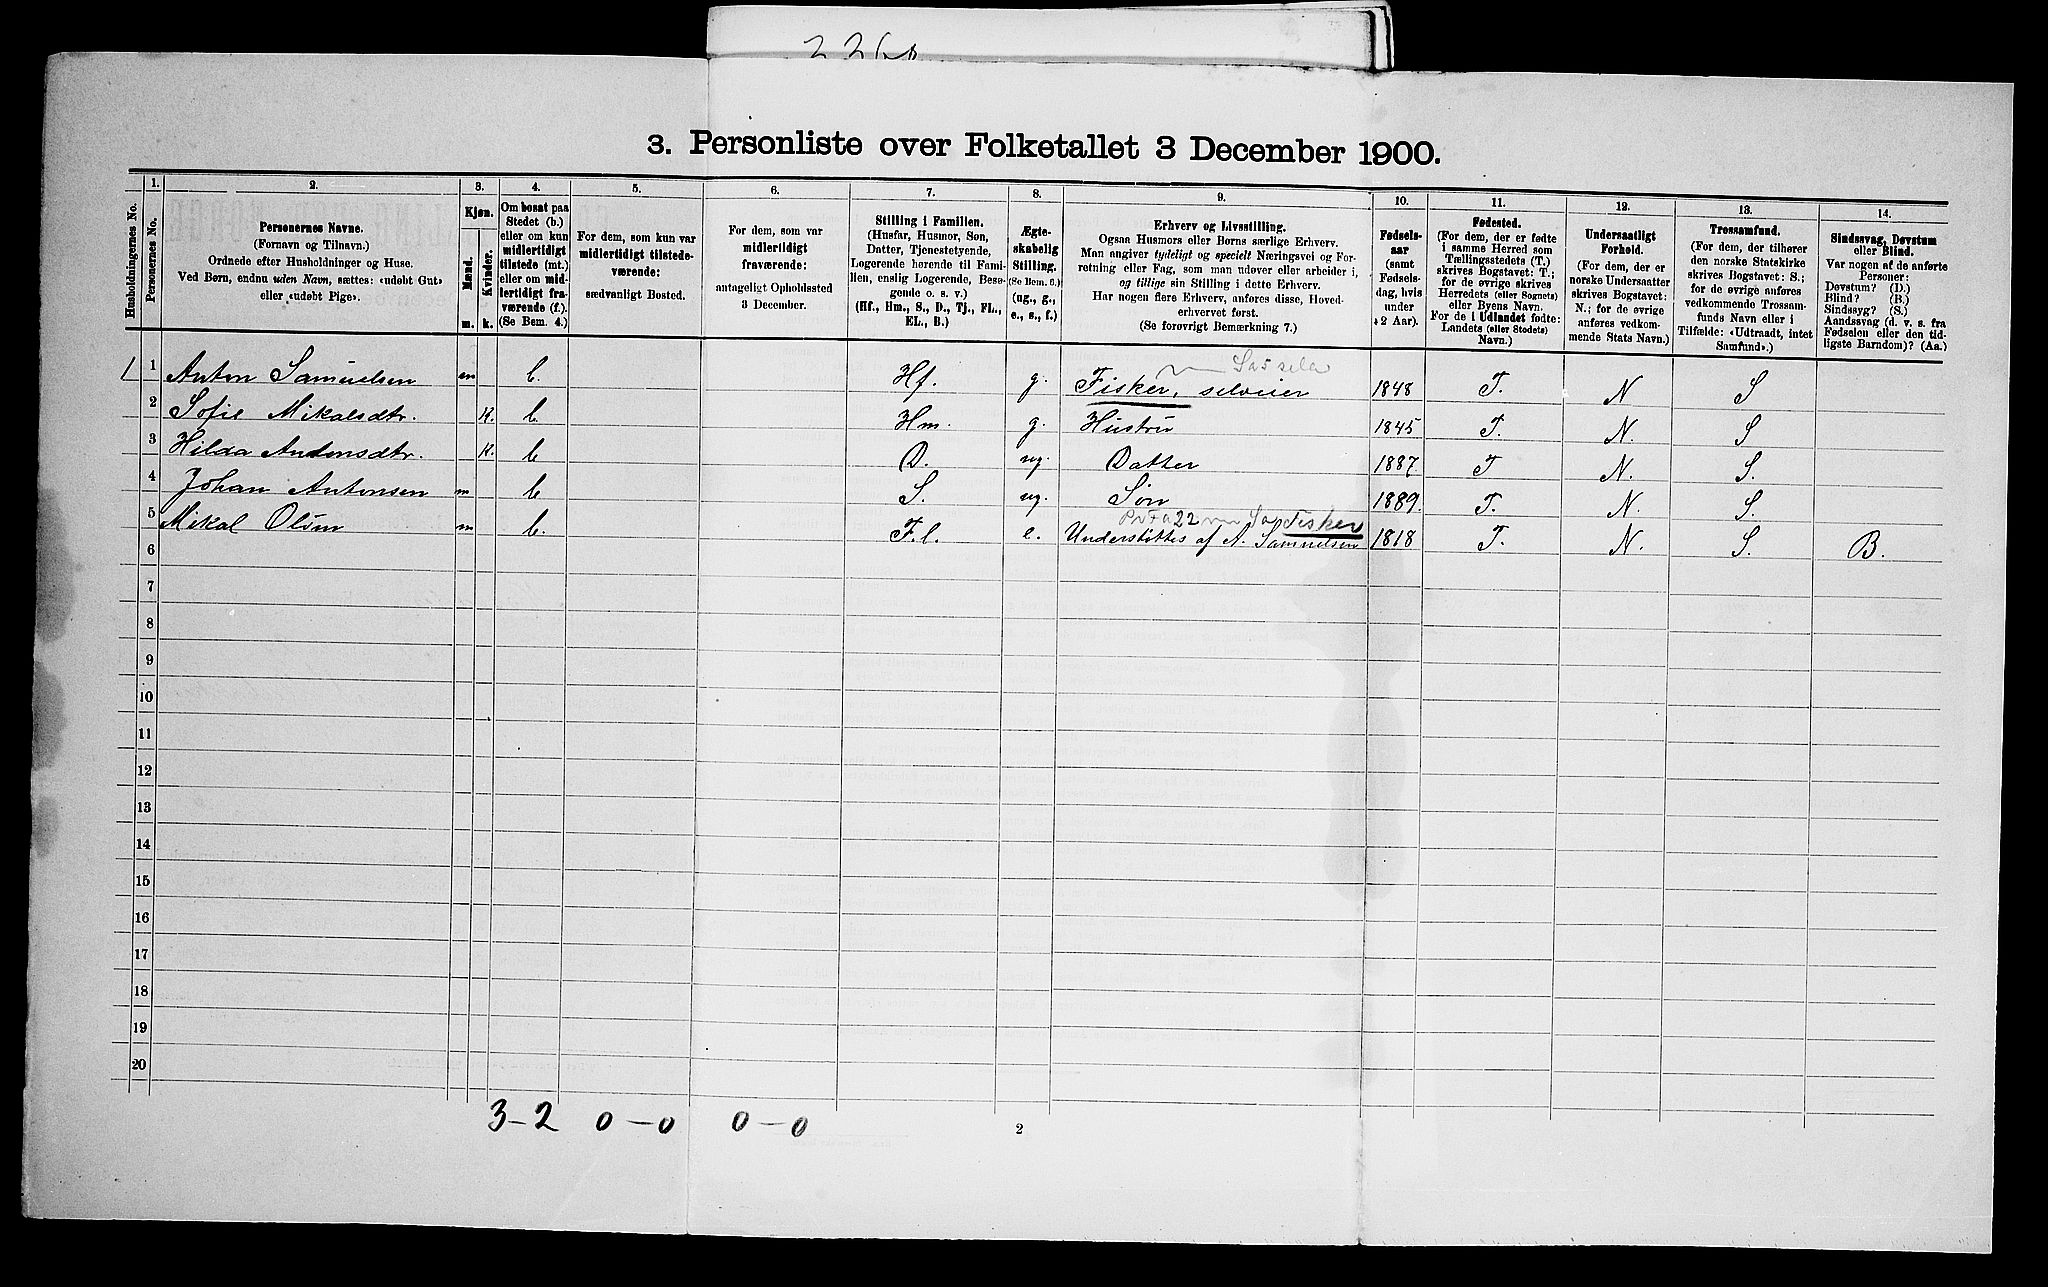 3. Personliste over Folketallet 3 December 1900.
1. 2. 3. 4. 5. 6. 7. 8. 9. 10. 11. 12. 13. 14.
Husholdningernes No.
Personernes No.
Personernes Navne.
(Fornavn og Tilnavn.)
Ordnede efter Husholdninger og Huse.
Ved Børn, endnu uden Navn, sættes: «udøbt Gut»
eller «udøbt Pige».
Kjøn.
Mænd.
Kvinder.
m. k.
Om bosat paa
Stedet (b.)
eller om kun
midlertidigt
tilstede (mt.)
eller om mid-
lertidigt fra-
værende (f.).
(Se Bem. 4.)
For dem, som kun var
midlertidigt tilstede-
værende:
sædvanligt Bosted.
For dem, som var
midlertidigt
fraværende:
antageligt Opholdssted
3 December.
Stilling i Familien.
(Husfar, Husmor, Søn,
Datter, Tjenestetyende,
Logerende hørende til Fami-
lien, enslig Logerende, Besø-
gende o. s. v.)
(Hf., Hm., S., D., Tj., FL.,
EL., B.)
Ægte-
skabelig
Stilling.
(Se Bem. 6.)
(ug., g.,
e., s., f.)
Erhverv og Livsstilling.
Ogsaa Husmors eller Børns særlige Erhverv.
Man angiver tydeligt og specielt Næringsvei og For-
retning eller Fag, som man udøver eller arbeider i,
og tillige sin Stilling i dette Erhverv.
Har nogen flere Erhverv, anføres disse, Hoved-
erhvervet først.
(Se forøvrigt Bemærkning 7.)
Fødsels-
aar
(samt
Fødsels-
dag, hvis
under
2 Aar).
Fødested.
(For dem, der er fødte
i samme Herred som
Tællingsstedets (T.)
skrives Bogstavet: T.;
for de øvrige skrives
Herredets (eller Sognets)
eller Byens Navn.
For de i Udlandet fødte:
Landets (eller Stedets)
Navn.)
Undersaatligt
Forhold.
(For dem, der er
norske Undersaatter
skrives Bogstavet:
N.; for de øvrige
anføres vedkom-
mende Stats Navn.)
Trossamfund.
(For dem, der tilhører
den norske Statskirke
skrives Bogstavet: S.;
for de øvrige anføres
vedkommende Trossam-
funds Navn eller i
Tilfælde: «Udtraadt, intet
Samfund».)
Sindssvag, Døvstum
eller Blind.
Var nogen af de anførte
Personer:
Døvstum? (D.)
Blind? (B.)
Sindssyg? (S.)
Aandssvag (d. v. s. fra
Fødselen eller den tid-
ligste Barndom)? (Aa.)
1 1 Anton Samuelsen m b. Hf. g. Fisker, selveier 1848 T. N S
2 Sofie Mikalsdtr. K. b. Hm. g. Hustru 1845 T. N. S
3 Hilda Antonsdtr. K. b D. ug. Datter 1887. T N. S.
4 Johan Antonsen m b S. ug. Søn 1889. T. N. S.
Fisker
5 Mikal Olsen m b. F.l. e. Understøttes af A. Samuelsen 1818 T. N. S. B.
6
7
8
9
10
11
12
13
14
15
16
17
18
19
20
3-2 0-0 0-0
2